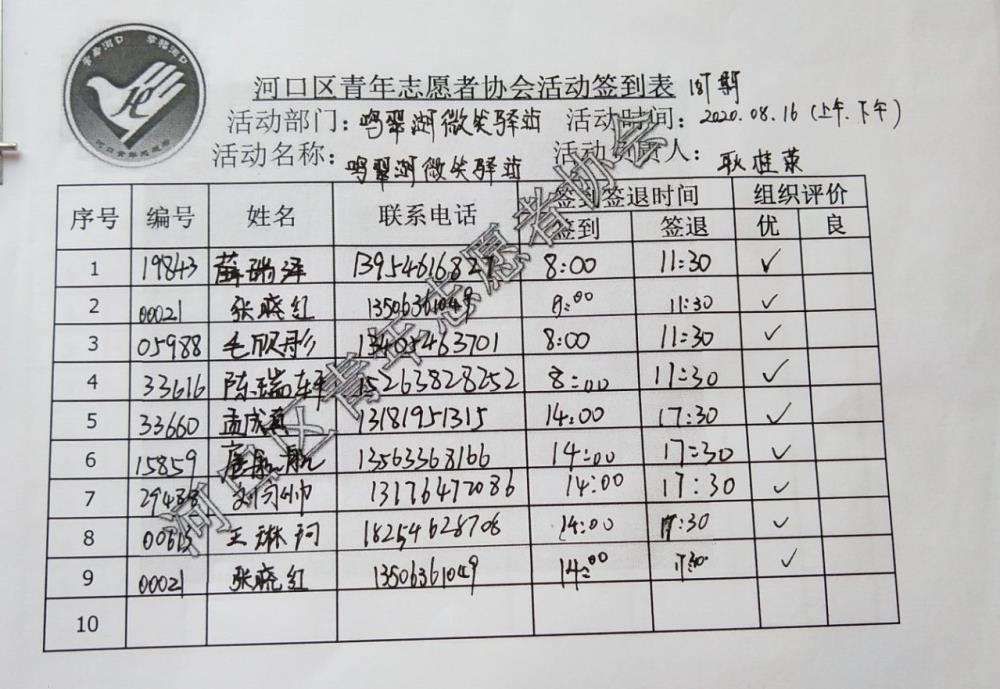 青春河口 幸福河口
河口青年志愿者
河口区青年志愿者协会活动签到表 187期
活动部门:鸣翠湖微笑驿站 活动时间:2020.08.16(上午.下午)
活动名称:鸣翠湖微笑驿站 活动负责人:耿桂荣
序号 编号 姓名 联系电话 签到签退时间 组织评价
签到 签退 优 良
1 19843 薛瑞泽 13954616827 8:00 11:30 ✓
2 00021 张晓红 13506361049 8:00 11:30 ✓
3 05988 毛欣彤 13405463701 8:00 11:30 ✓
4 33616 陈瑞轩 15263828252 8:00 11:30 ✓
5 33660 孟成真 13181951315 14:00 17:30 ✓
6 15859 唐航航 13563368166 14:00 17:30 ✓
7 29488 刘闫帅 13176472086 14:00 17:30 ✓
8 00615 王琳珂 18254628708 14:00 17:30 ✓
9 00021 张晓红 13506361049 14:00 17:30 ✓
10
河口区青年志愿者协会